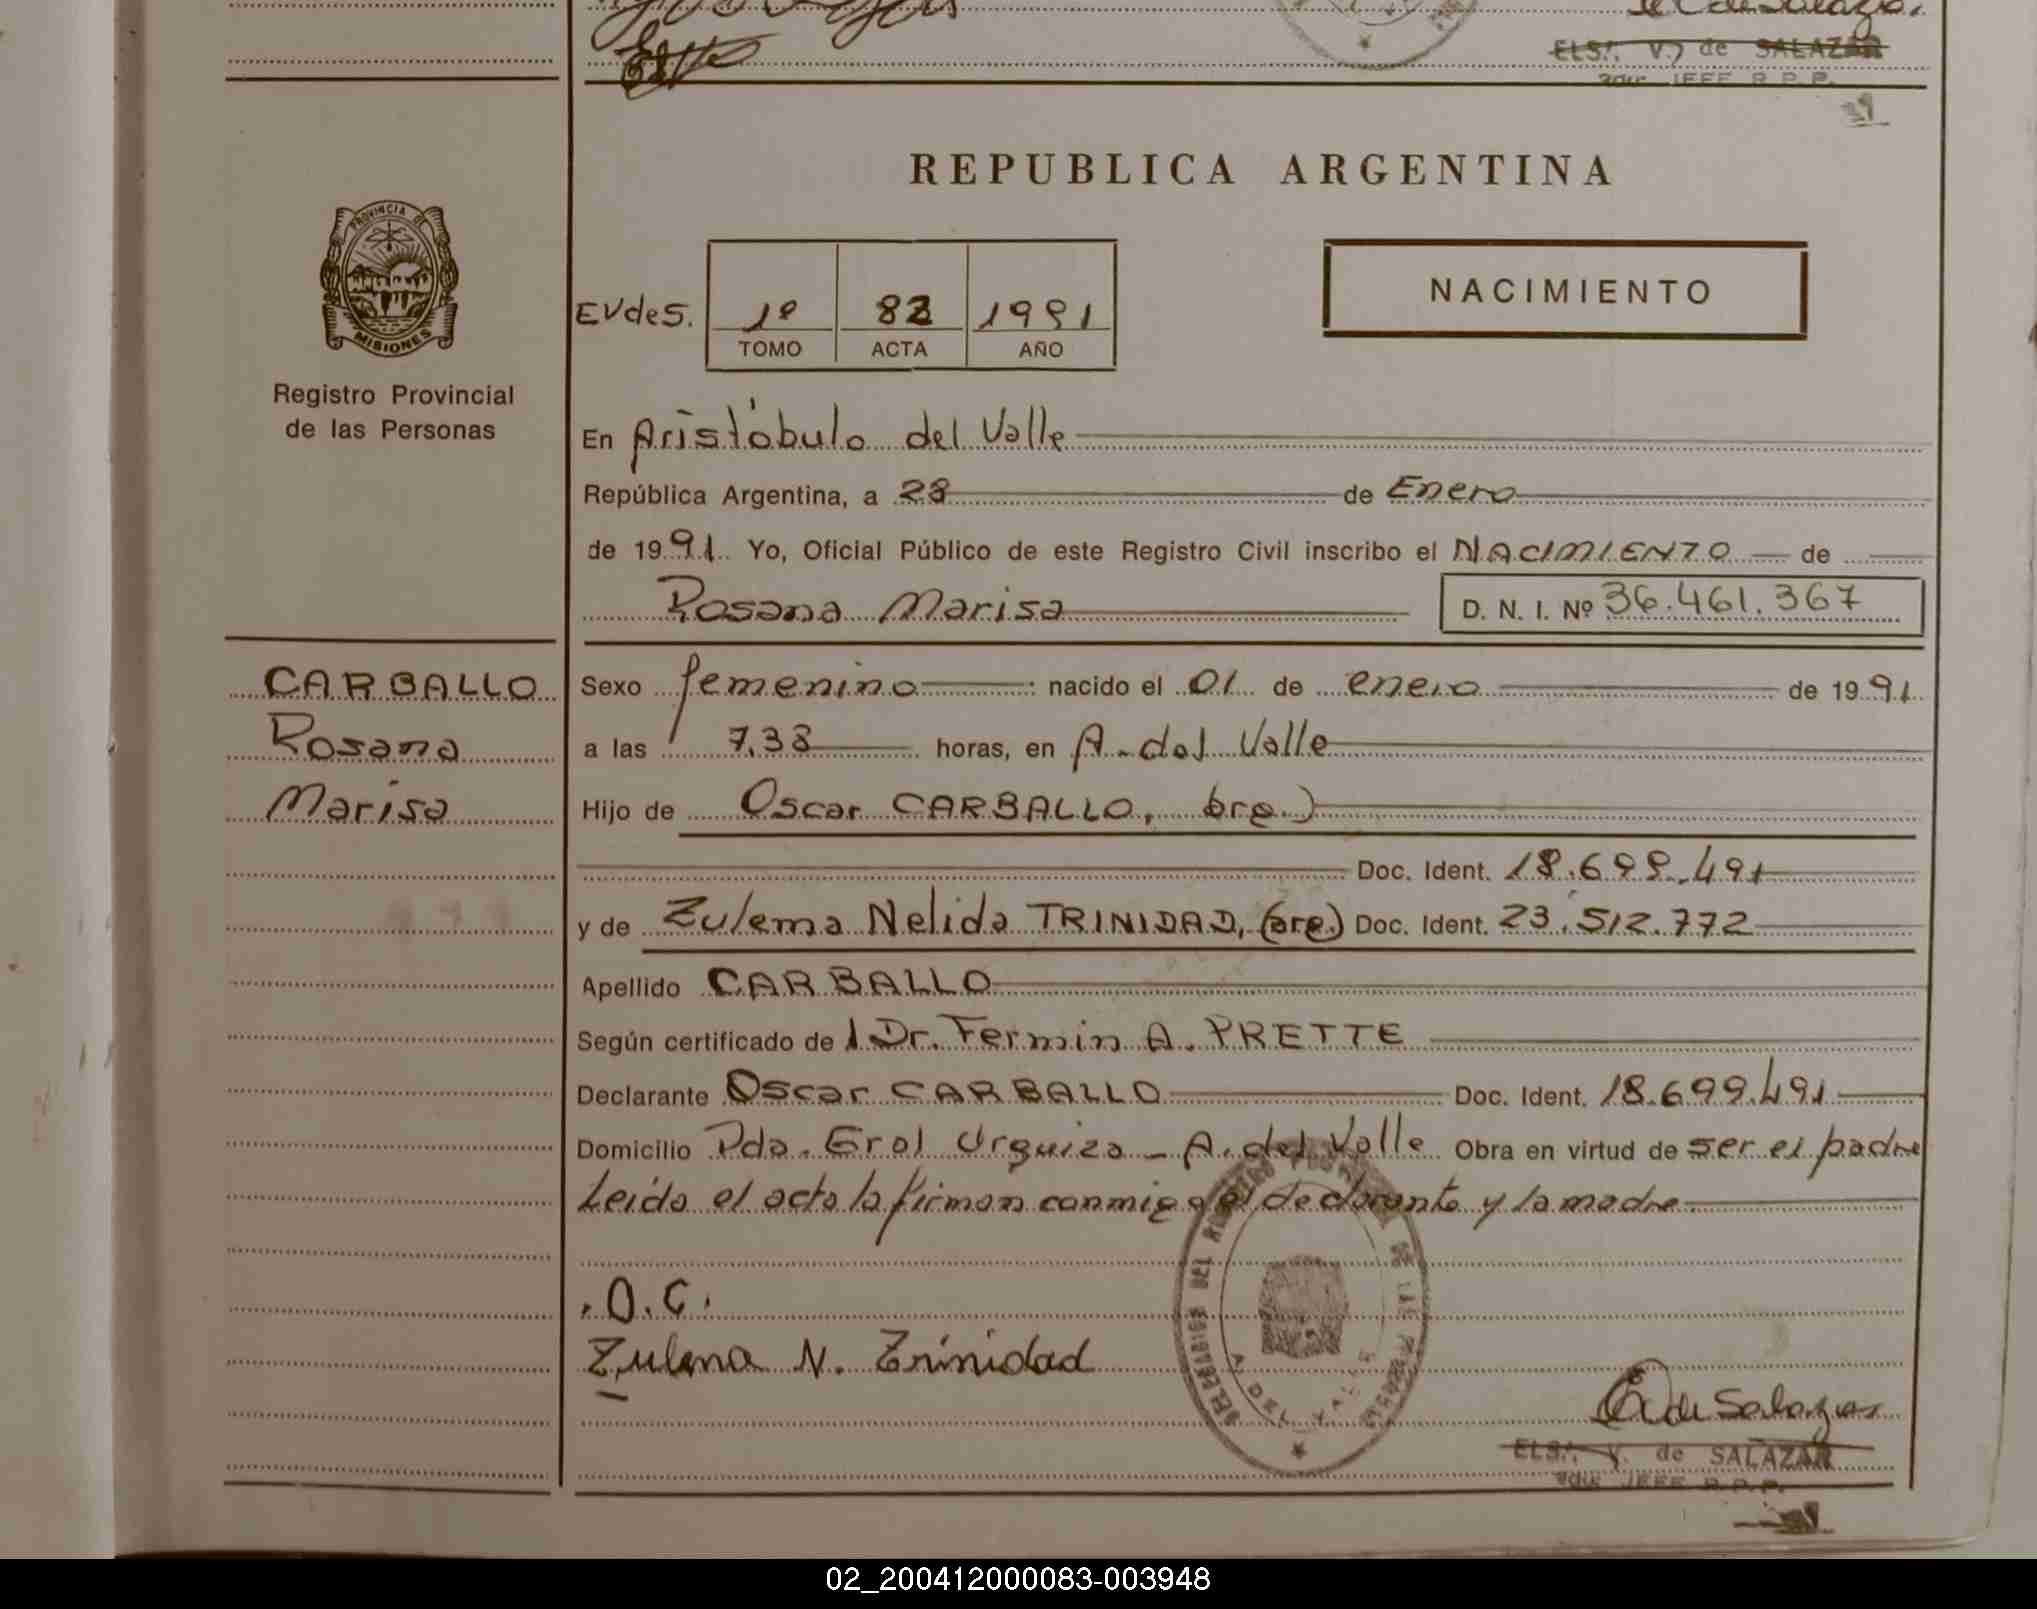 de SALAZAR
JEFE R.P.P.
REPUBLICA ARGENTINA
PROVINCIA DE
MISIONES
Registro Provincial
de las Personas
NACIMIENTO
EVdeS. 1º 82 1991
TOMO ACTA AÑO
En Aristóbulo del Valle
República Argentina, a 28 de Enero
de 1991 Yo, Oficial Público de este Registro Civil inscribo el NACIMIENTO de
Rosana Marisa D. N. I. Nº 36.461.367
CARBALLO
Rosana
Marisa
Sexo femenino nacido el 01 de enero de 1991
a las 7,38 horas, en A. del Valle
Hijo de Oscar CARBALLO, arg.)
Doc. Ident. 18.699.491
y de Zulema Nelida TRINIDAD, (arg.) Doc. Ident. 23.512.772
Apellido CARBALLO
Según certificado del Dr. Fermin A. PRETTE
Declarante Oscar CARBALLO Doc. Ident. 18.699.491
Domicilio Pda. Gral Urquiza - A. del Valle Obra en virtud de ser el padre
Leida el acta la firman conmigo el declarante y la madre
O.C.
Zulema N. Trinidad
A. DEL VALLE
de Salazar
ELSA V. de SALAZAR
JEFE R.P.P.
02_200412000083-003948